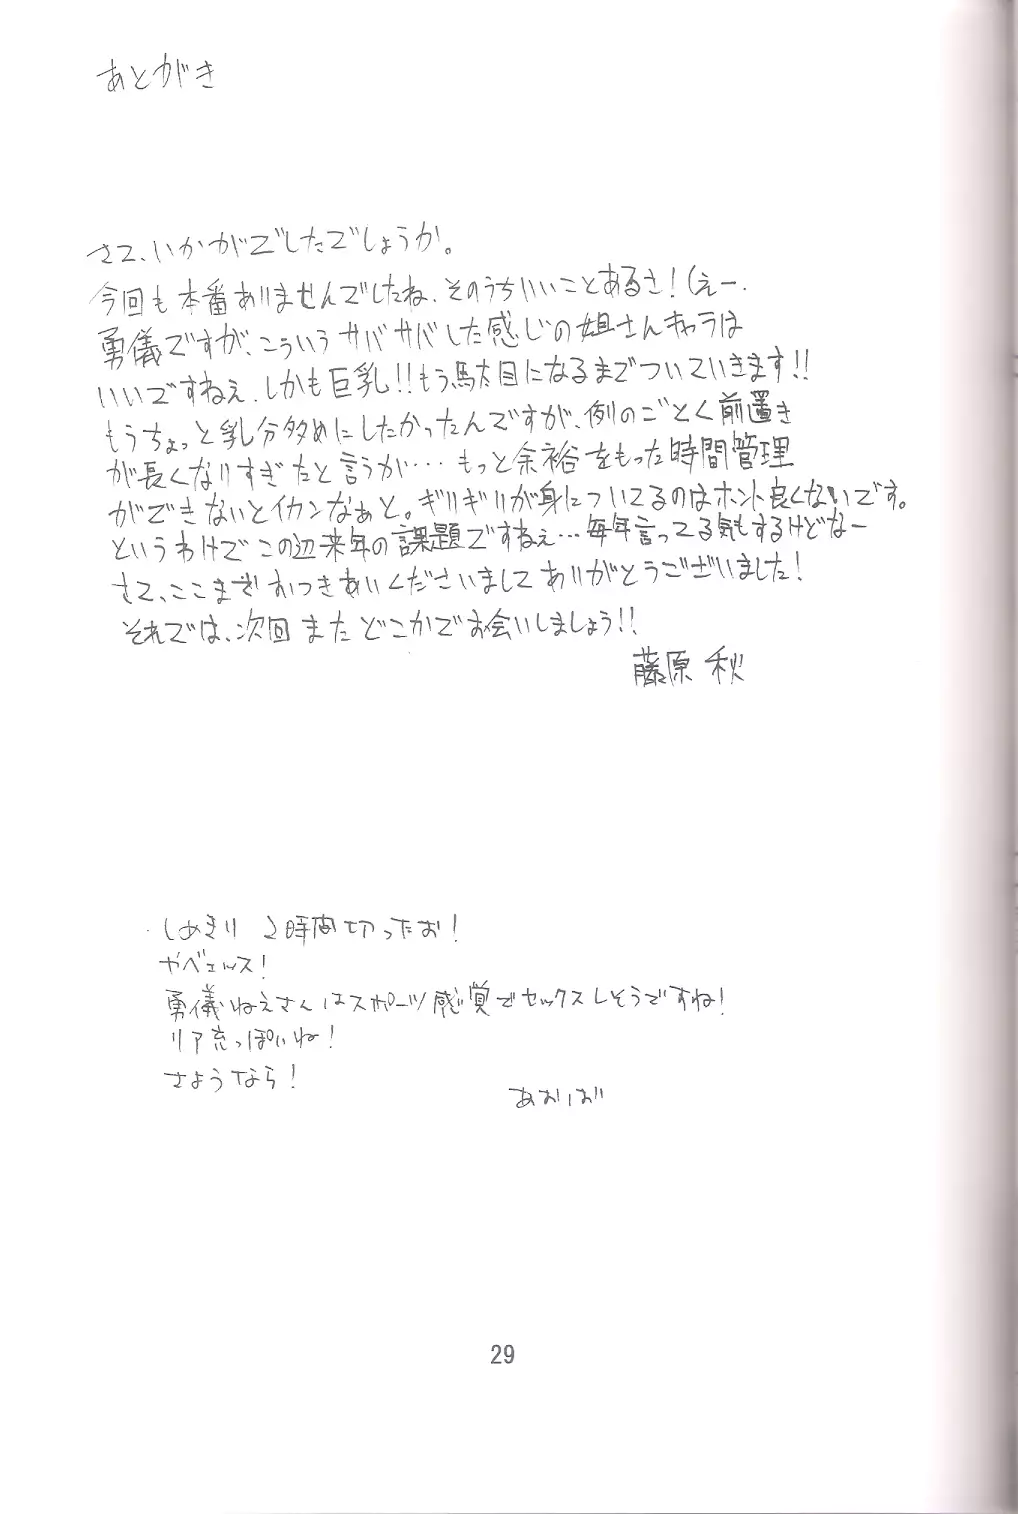 あとがき
さて、いかがでしたでしょうか。
今回も本番ありませんでしたね、そのうちいいことあるさ!(えー、
勇儀ですが、こういうサバサバした感じの姐さんキャラは
いいですねぇ、しかも巨乳!!もう駄目になるまでついていきます!!
もうちょっと乳分多めにしたかったんですが、例のごとく前置き
が長くなりすぎたと言うか…もっと余裕をもった時間管理
ができないとイカンなぁと。ギリギリが身についてるのはホント良くないです。
というわけでこの辺来年の課題ですねぇ…毎年言ってる気もするけどなー
さて、ここまでおつきあいくださいましてありがとうございました!
それでは、次回またどこかでお会いしましょう!!
藤原 秋
しめきり 2時間切ったお!
やべェッス!
勇儀ねえさんはスポーツ感覚でセックスしそうですね!
リア充っぽいね!
さようなら!
あおば
29